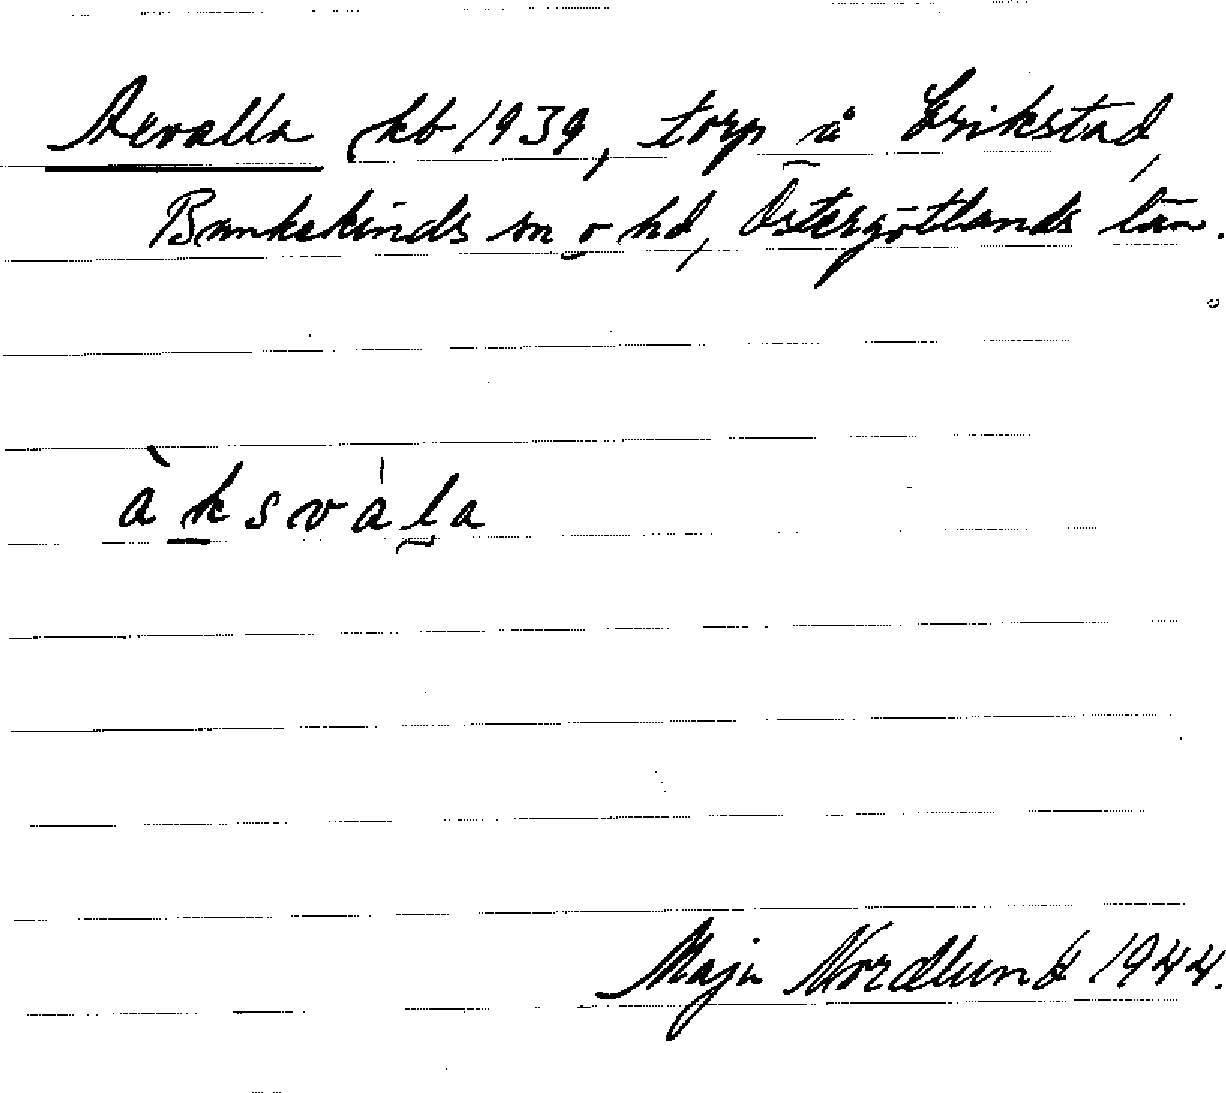 Axvalla (kb 1939, torp å Erikstad,
Bankekinds sn o hd, Östergötlands län.
àksvàla
Maja Nordlund 1944.